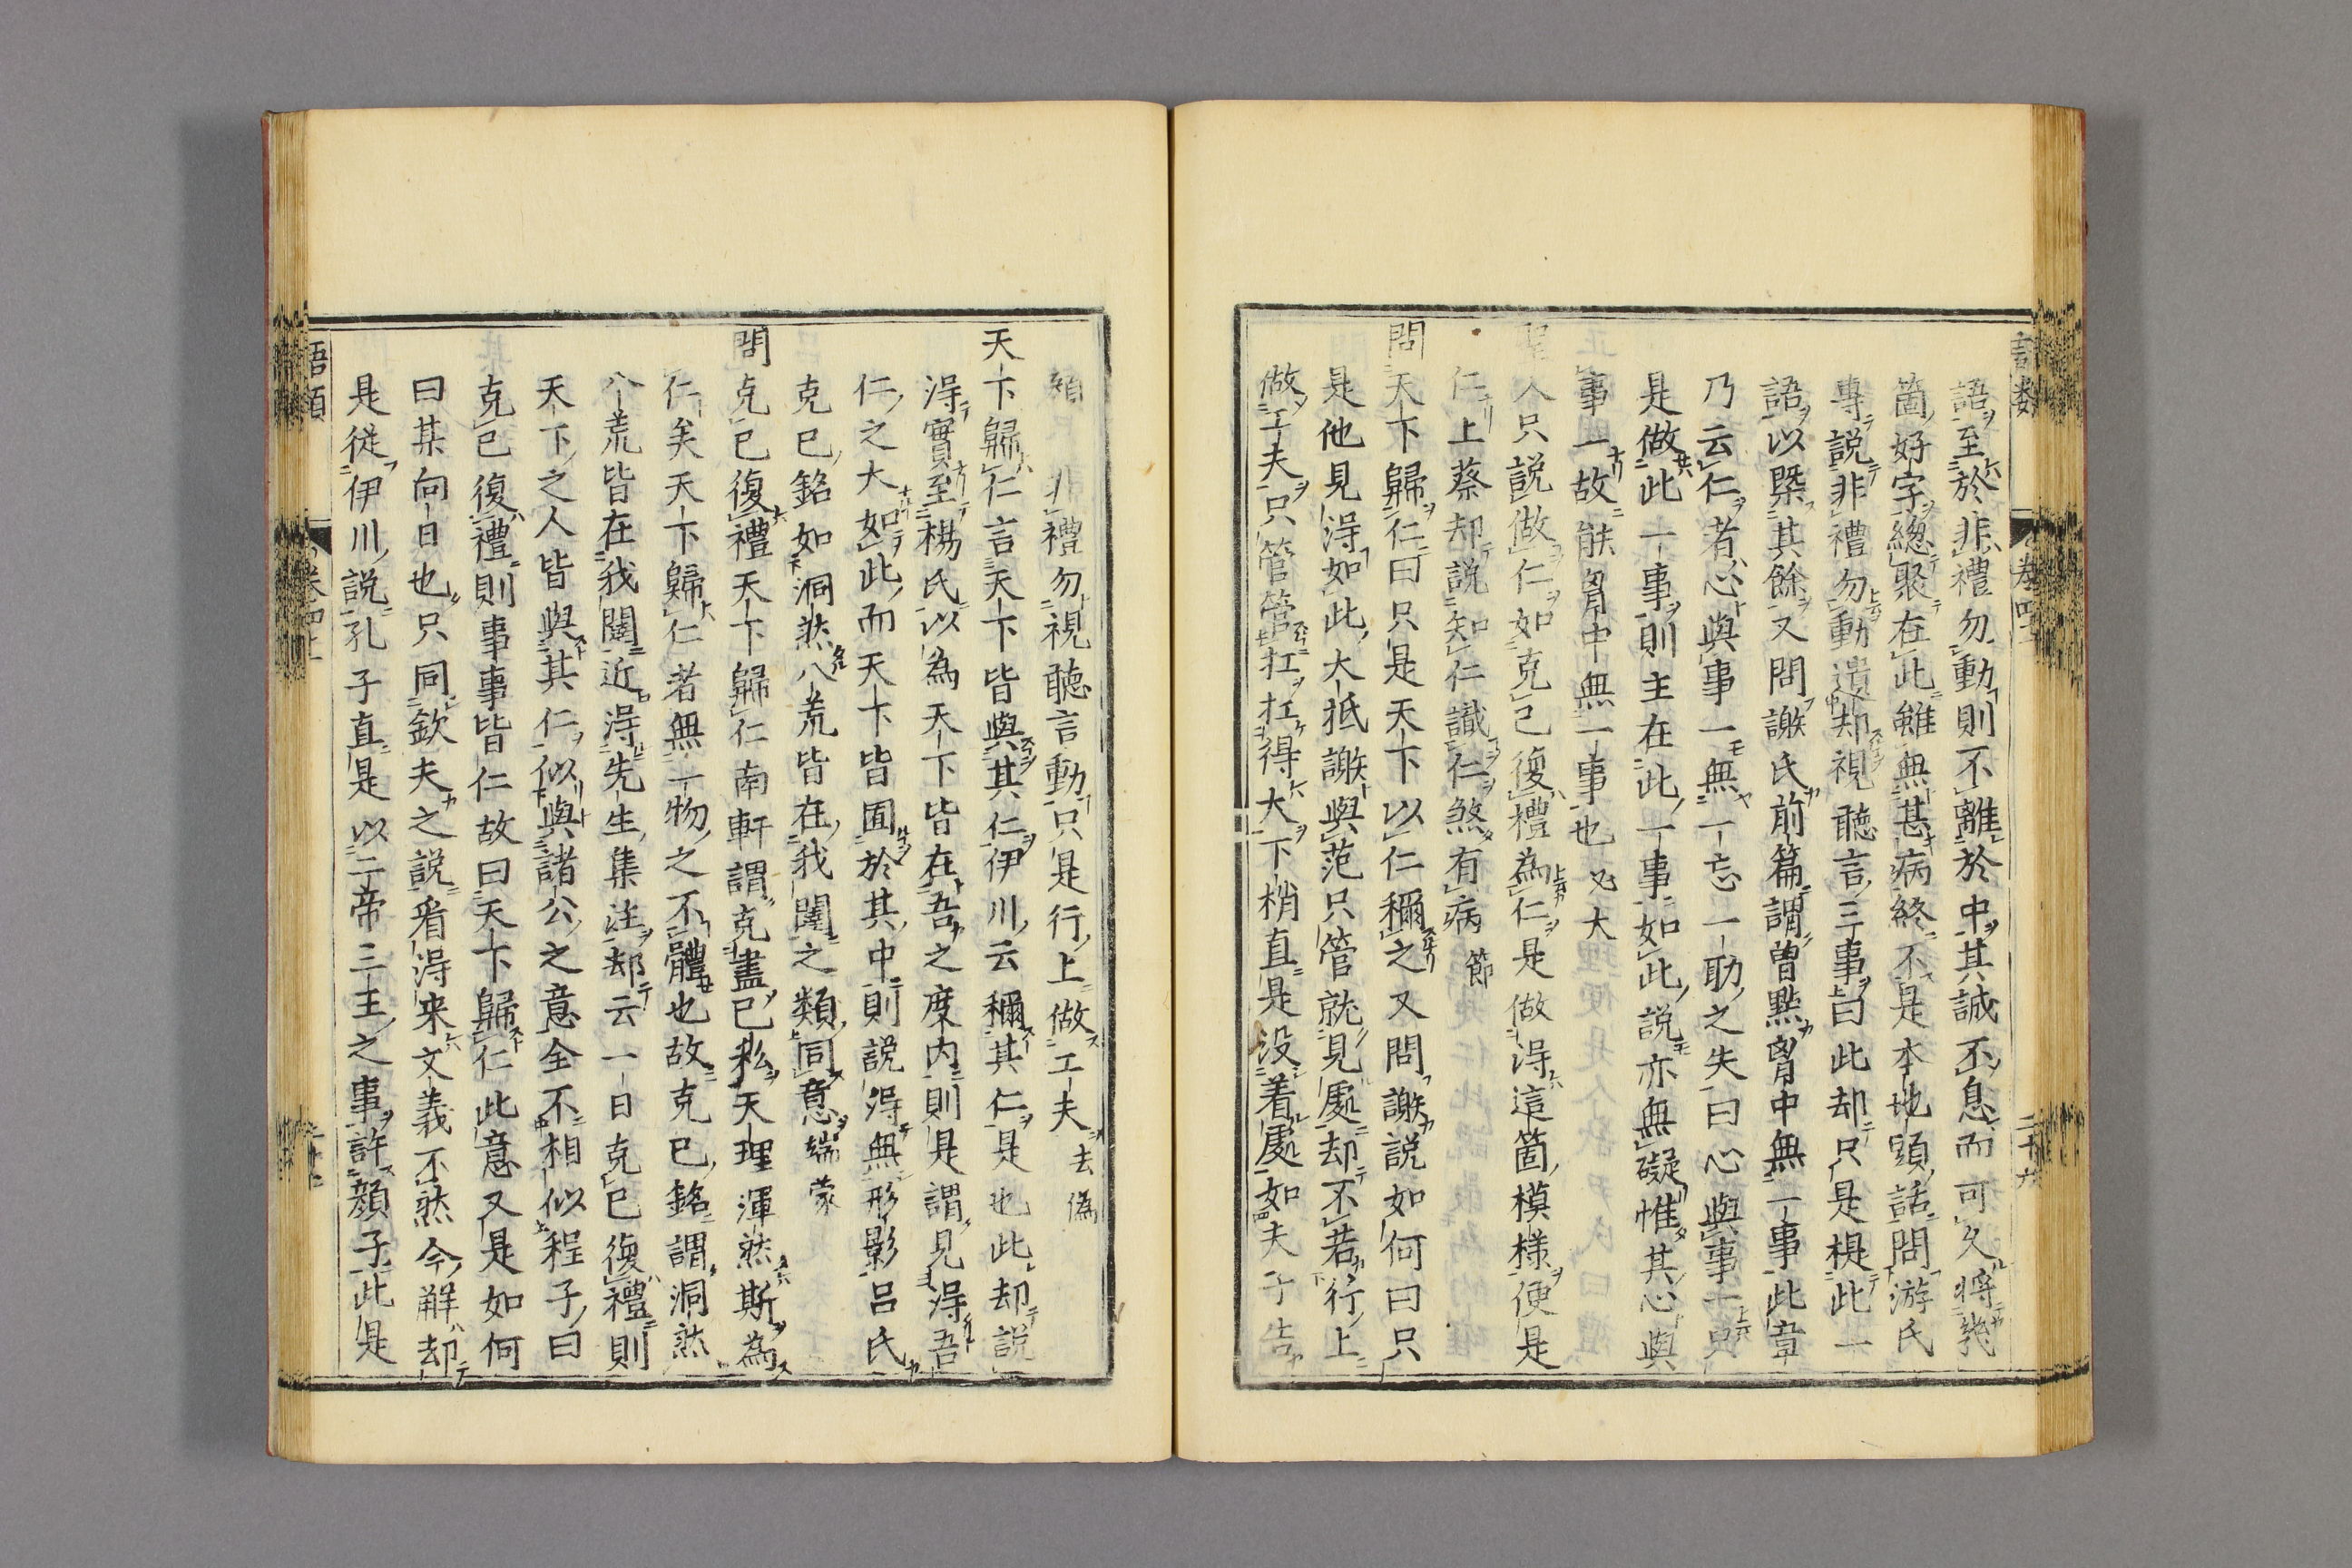 語至於非禮勿動則不離於中其誠不息而可久將幾
箇好字總聚在此雖無甚病終不是本地頭話問游氏
專說非禮勿動遺却視聽言三事曰此却只是提此一
語以槩其餘又問謝氏前篇謂曽點胷中無一事此章
乃云仁者心與事一無一忘一助之失曰心與事一只
是做此一事則主在此一事如此說亦無礙惟其心與
事一故能胷中無一事也必大
聖人只說做仁如克己復禮為仁是做得這箇模様便是
仁上蔡却說知仁識仁煞有病節
問天下歸仁曰只是天下以仁稱之又問謝說如何曰只
是他見得如此大抵謝與范只管就見處却不若行上
做工夫只管管扛扛得大下梢直是没着處如夫子告
顔 非禮勿視聽言動只是行上做工夫去偽
天下歸仁言天下皆與其仁伊川云稱其仁是也此却說
得實至楊氏以為天下皆在吾之度内則是謂見得吾
仁之大如此而天下皆囿於其中則說得無形影呂氏
克己銘如洞然八荒皆在我闥之類同意端蒙
問克己復禮天下歸仁南軒謂克盡己私天理渾然斯為
仁矣天下歸仁者無一物之不體也故克己銘謂洞然
八荒皆在我闥近得先生集注却云一日克己復禮則
天下之人皆與其仁似與諸公之意全不相似程子曰
克己復禮則事事皆仁故曰天下歸仁此意又是如何
曰某向日也只同欽夫之說看得来文義不然今解却
是從伊川說孔子直是以二帝三王之事許顔子此是
語類
卷四十一
二十六